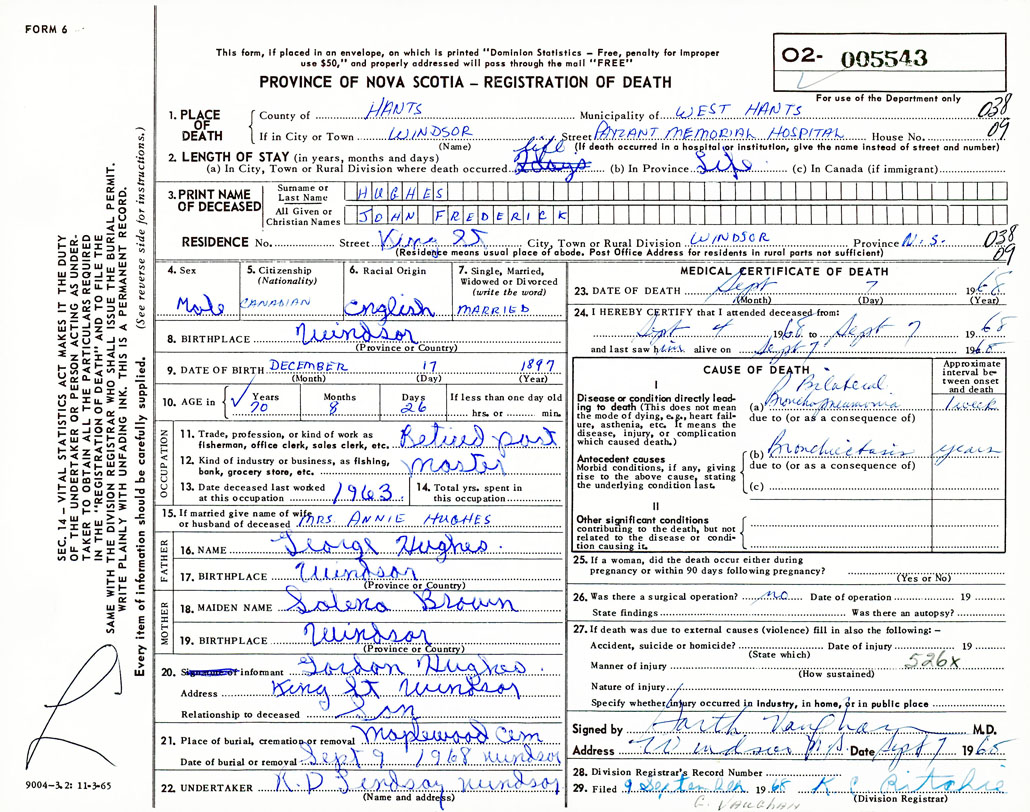 FORM 6
This form, if placed in an envelope, on which is printed "Dominion Statistics - Free, penalty for improper
use $50," and properly addressed will pass through the mail "FREE"
O2- 005543
For use of the Department only
PROVINCE OF NOVA SCOTIA - REGISTRATION OF DEATH
1. PLACE OF DEATH
County of HANTS Municipality of WEST HANTS 038
If in City or Town WINDSOR Street PAYZANT MEMORIAL HOSPITAL House No. 09
(Name) (If death occurred in a hospital or institution, give the name instead of street and number)
2. LENGTH OF STAY (in years, months and days) life
(a) In City, Town or Rural Division where death occurred 2 days (b) In Province Life (c) In Canada (if immigrant)
3. PRINT NAME OF DECEASED
Surname or Last Name HUGHES
All Given or Christian Names JOHN FREDERICK
RESIDENCE No. Street King St City, Town or Rural Division WINDSOR Province N.S. 038
(Residence means usual place of abode. Post Office Address for residents in rural parts not sufficient) 09
4. Sex Male
5. Citizenship (Nationality) CANADIAN
6. Racial Origin English
7. Single, Married, Widowed or Divorced (write the word) MARRIED
8. BIRTHPLACE Windsor
(Province or Country)
9. DATE OF BIRTH DECEMBER 17 1897
(Month) (Day) (Year)
10. AGE in Years 70 Months 8 Days 26 If less than one day old hrs. or min.
OCCUPATION
11. Trade, profession, or kind of work as fisherman, office clerk, sales clerk, etc. Retired post
12. Kind of industry or business, as fishing, bank, grocery store, etc. master
13. Date deceased last worked at this occupation 1963
14. Total yrs. spent in this occupation
15. If married give name of wife or husband of deceased MRS. ANNIE HUGHES
FATHER
16. NAME George Hughes.
17. BIRTHPLACE Windsor
(Province or Country)
MOTHER
18. MAIDEN NAME Salena Brown
19. BIRTHPLACE Windsor
(Province or Country)
20. Signature of informant Gordon Hughes.
Address King St Windsor
Relationship to deceased Son
21. Place of burial, cremation or removal Maplewood Cem
Date of burial or removal Sept 9 1968 Windsor
22. UNDERTAKER K.D Lindsay Windsor
(Name and address)
MEDICAL CERTIFICATE OF DEATH
23. DATE OF DEATH Sept 7 1968
(Month) (Day) (Year)
24. I HEREBY CERTIFY that I attended deceased from:
Sept 4 1968 to Sept 7 1968
and last saw him alive on Sept 7 1968
CAUSE OF DEATH
Approximate interval between onset and death
I
Disease or condition directly leading to death (This does not mean the mode of dying, e.g., heart failure, asthenia, etc. It means the disease, injury, or complication which caused death.)
(a) Bilateral Bronchopneumonia 1 week
due to (or as a consequence of)
Antecedent causes
Morbid conditions, if any, giving rise to the above cause, stating the underlying condition last.
(b) Bronchiectasis years
due to (or as a consequence of)
(c)
II
Other significant conditions
contributing to the death, but not related to the disease or condition causing it.
25. If a woman, did the death occur either during
pregnancy or within 90 days following pregnancy?
(Yes or No)
26. Was there a surgical operation? no Date of operation 19
State findings Was there an autopsy?
27. If death was due to external causes (violence) fill in also the following: -
Accident, suicide or homicide? Date of injury 19
(State which) 526X
Manner of injury
(How sustained)
Nature of injury
Specify whether injury occurred in Industry, in home, or in public place
Signed by Garth Vaughan M.D.
Address Windsor N.S. Date Sept 7 1968
28. Division Registrar's Record Number
29. Filed 9 September 1968 K C Ritchie
(Division Registrar)
G. VAUGHAN
SEC. 14 - VITAL STATISTICS ACT MAKES IT THE DUTY
OF THE UNDERTAKER OR PERSON ACTING AS UNDER-
TAKER TO OBTAIN ALL THE PARTICULARS REQUIRED
IN THE "REGISTRATION OF DEATH" AND TO FILE THE
SAME WITH THE DIVISION REGISTRAR WHO SHALL ISSUE THE BURIAL PERMIT.
WRITE PLAINLY WITH UNFADING INK. THIS IS A PERMANENT RECORD.
Every item of information should be carefully supplied. (See reverse side for instructions.)
9004-3.2: 11-3-65